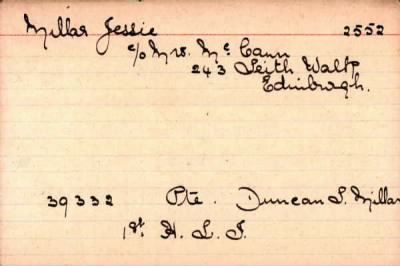 Millar Jessie 2552
c/o Mrs. Mc Cann
243 Leith Walk
Edinburgh.
39332 Pte. Duncan S. Millar
1st H. L. I.